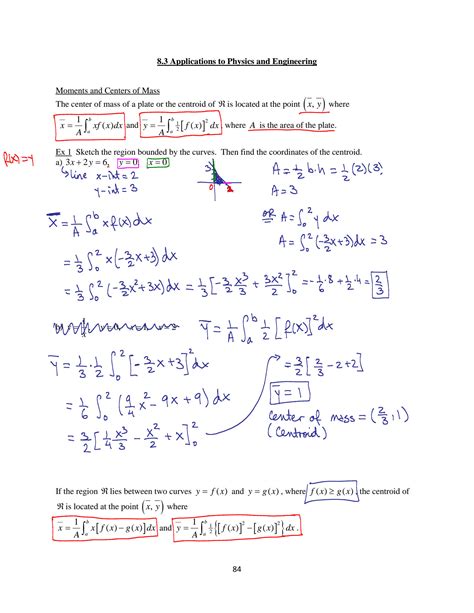 8.3 Applications to Physics and Engineering
Moments and Centers of Mass
The center of mass of a plate or the centroid of ℜ is located at the point (x̄, ȳ) where
x̄ = 1/A ∫_a^b xf(x)dx and ȳ = 1/A ∫_a^b ½[f(x)]² dx, where A is the area of the plate.
f(x)=y
Ex 1 Sketch the region bounded by the curves. Then find the coordinates of the centroid.
a) 3x + 2y = 6, y = 0, x = 0
line x-int = 2
y-int = 3
3
2
A = ½ b·h = ½ (2)(3)
A = 3
x̄ = 1/A ∫_a^b x f(x) dx
OR A = ∫_0^2 y dx
A = ∫_0^2 (-3/2 x + 3) dx = 3
= 1/3 ∫_0^2 x(-3/2 x + 3) dx
= 1/3 ∫_0^2 (-3/2 x² + 3x) dx = 1/3 [-3/2 x³/3 + 3x²/2]_0^2 = -1/6·8 + ½·4 = 2/3
ȳ = 1/A ∫_a^b ½ [f(x)]² dx
ȳ = 1/3 · 1/2 ∫_0^2 [-3/2 x + 3]² dx
= 1/6 ∫_0^2 (9/4 x² - 9x + 9) dx
= 3/2 [1/4 x³/3 - x²/2 + x]_0^2
= 3/2 [2/3 - 2 + 2]
ȳ = 1
center of mass = (2/3, 1)
(Centroid)
If the region ℜ lies between two curves y = f(x) and y = g(x), where f(x) ≥ g(x), the centroid of
ℜ is located at the point (x̄, ȳ) where
x̄ = 1/A ∫_a^b x[f(x) − g(x)]dx and ȳ = 1/A ∫_a^b ½{[f(x)]² − [g(x)]²}dx.
84